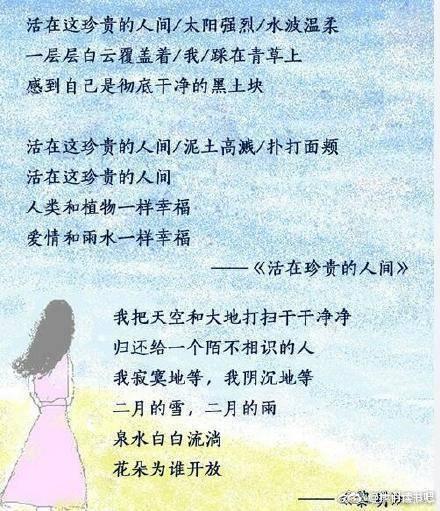 活在这珍贵的人间/太阳强烈/水波温柔
一层层白云覆盖着/我/踩在青草上
感到自己是彻底干净的黑土块
活在这珍贵的人间/泥土高溅/扑打面颊
活在这珍贵的人间
人类和植物一样幸福
爱情和雨水一样幸福
——《活在珍贵的人间》
我把天空和大地打扫干干净净
归还给一个陌不相识的人
我寂寞地等，我阴沉地等
二月的雪，二月的雨
泉水白白流淌
花朵为谁开放
——《黎明》